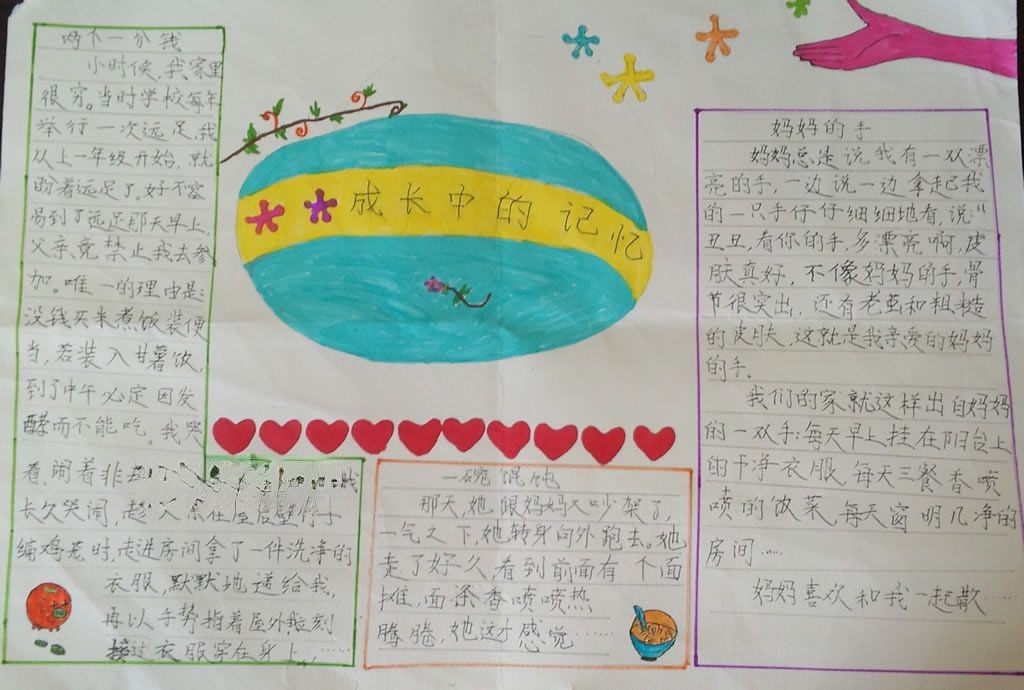 成长中的记忆
两个一分钱
小时候,我家里
很穷。当时学校每年
举行一次远足,我
从上一年级开始,就
盼着远足了。好不容
易到了远足那天早上,
父亲竟禁止我去参
加。唯一的理由是:
没钱买米煮饭装便
当,若装入甘薯饭,
到了中午必定因发
酵而不能吃。我哭
着、闹着非
长久哭闹,趁父亲在屋后
编鸡笼时,走进房间拿了一件洗净的
衣服,默默地递给我,
再以手势指着屋外,我立刻
接过衣服穿在身上,……
一碗馄饨
那天,她跟妈妈又吵架了,
一气之下,她转身向外跑去。她
走了好久,看到前面有个面
摊,面条香喷喷热
腾腾,她这才感觉……
妈妈的手
妈妈总是说我有一双漂
亮的手,一边说一边拿起我
的一只手仔仔细细地看,说:“
丑丑,看你的手,多漂亮啊,皮
肤真好,不像妈妈的手,骨
节很突出,还有老茧和粗糙
的皮肤,这就是我亲爱的妈妈
的手。
我们的家就这样出自妈妈
的一双手:每天早上挂在阳台上
的干净衣服,每天三餐香喷
喷的饭菜,每天窗明几净的
房间……
妈妈喜欢和我一起散……